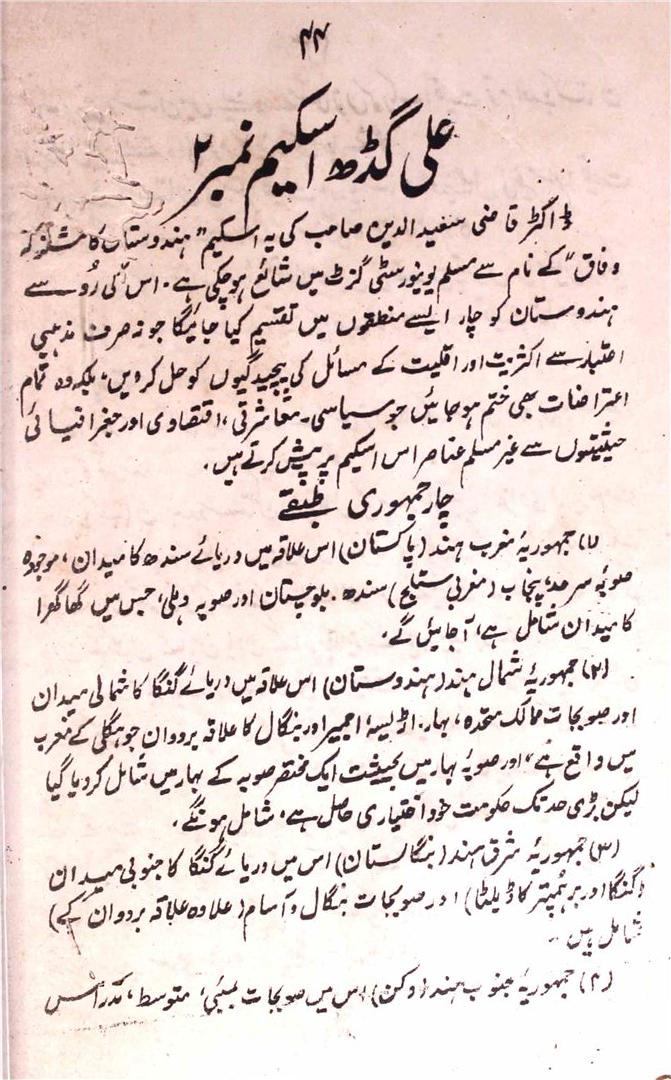 ۴۴
علی گڈھ اسکیم نمبر ۲
ڈاکٹر قاضی سعید الدین صاحب کی یہ اسکیم "ہندوستان کا مشترکہ
وفاق" کے نام سے مسلم یونیورسٹی گزٹ میں شائع ہوچکی ہے۔ اس کی رُو سے
ہندوستان کو چار ایسے منطقوں میں تقسیم کیا جائیگا جو نہ صرف مذہبی
اعتبار سے اکثریت اور اقلیت کے مسائل کی پیچیدگیوں کو حل کردیں، بلکہ وہ تمام
اعتراضات بھی ختم ہوجائیں جو سیاسی۔ معاشرتی، اقتصادی اور جغرافیائی
حیثیتوں سے غیر مسلم عناصر اس اسکیم پر پیش کرتے ہیں۔
چار جمہوری طبقے
(۱) جمہوریۂ مغرب ہند (پاکستان) اس علاقہ میں دریائے سندھ کا میدان، موجودہ
صوبۂ سرحد، پنجاب (مغربی ستلج) سندھ۔ بلوچستان اور صوبہ دہلی، جس میں گھاگھرا
کا میدان شامل ہے، آجائیں گے۔
(۲) جمہوریۂ شمال ہند (ہندوستان) اس علاقہ میں دریائے گنگا کا شمالی میدان
اور صوبجات ممالک متحدہ، بہار۔ اڈلیسۂ اجمیر اور بنگال کا علاقہ بردوان جو ہگلی کے مغرب
میں واقع ہے، اور صوبۂ بہار میں بحیثیت ایک مختصر صوبہ کے بہار میں شامل کردیا گیا
لیکن بڑی حد تک حکومت خود اختیاری حاصل ہے، شامل ہونگے۔
(۳) جمہوریۂ مشرق ہند (بنگالستان) اس میں دریائے گنگا کا جنوبی میدان
(گنگا اور برہمپتر کا ڈیلٹا) اور صوبجات بنگال و آسام (علاوہ علاقہ بردوان کے)
شامل ہیں۔
(۴) جمہوریۂ جنوب ہند (دکن) اس میں صوبجات بمبئی، متوسط، مدراس